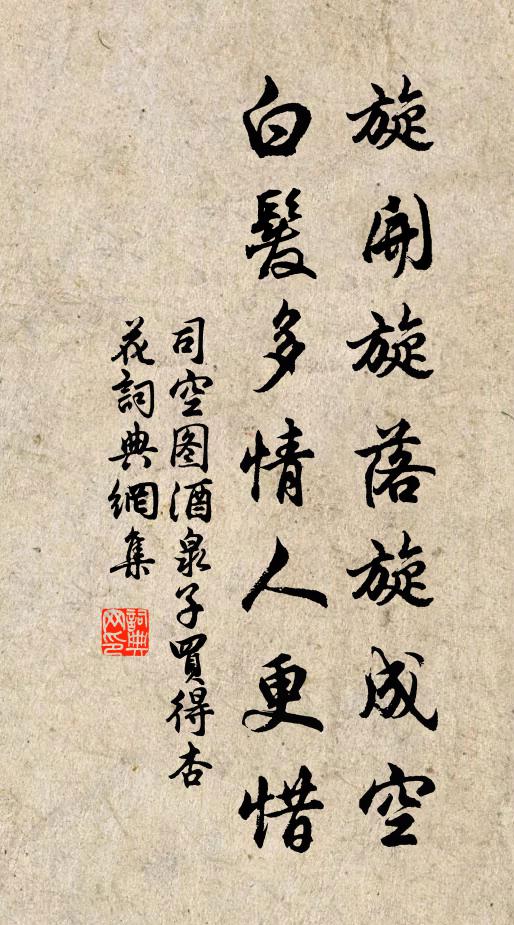 旋開旋落旋成空
白髮多情人更惜
司空图酒泉子買得杏
花詞典網集
詞典
网印